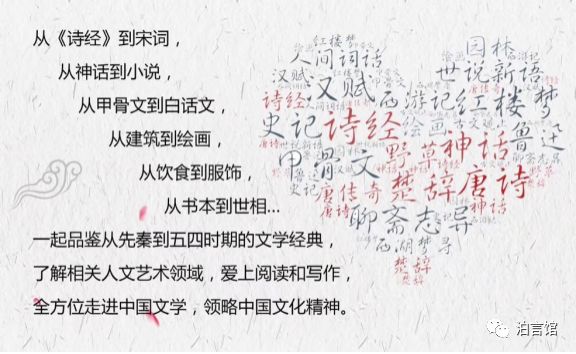 从《诗经》到宋词，
从神话到小说，
从甲骨文到白话文，
从建筑到绘画，
从饮食到服饰，
从书本到世相...
一起品鉴从先秦到五四时期的文学经典，
了解相关人文艺术领域，爱上阅读和写作，
全方位走进中国文学，领略中国文化精神。
红楼梦
人间词话
园林
汉赋
汉赋
世说新语
诗经
西游记
红楼梦
史记
诗经
绘画
鲁迅
甲骨文
野草
神话
楚辞
唐诗
唐传奇
聊斋志异
神话
西湖梦寻
楚辞
泊言馆